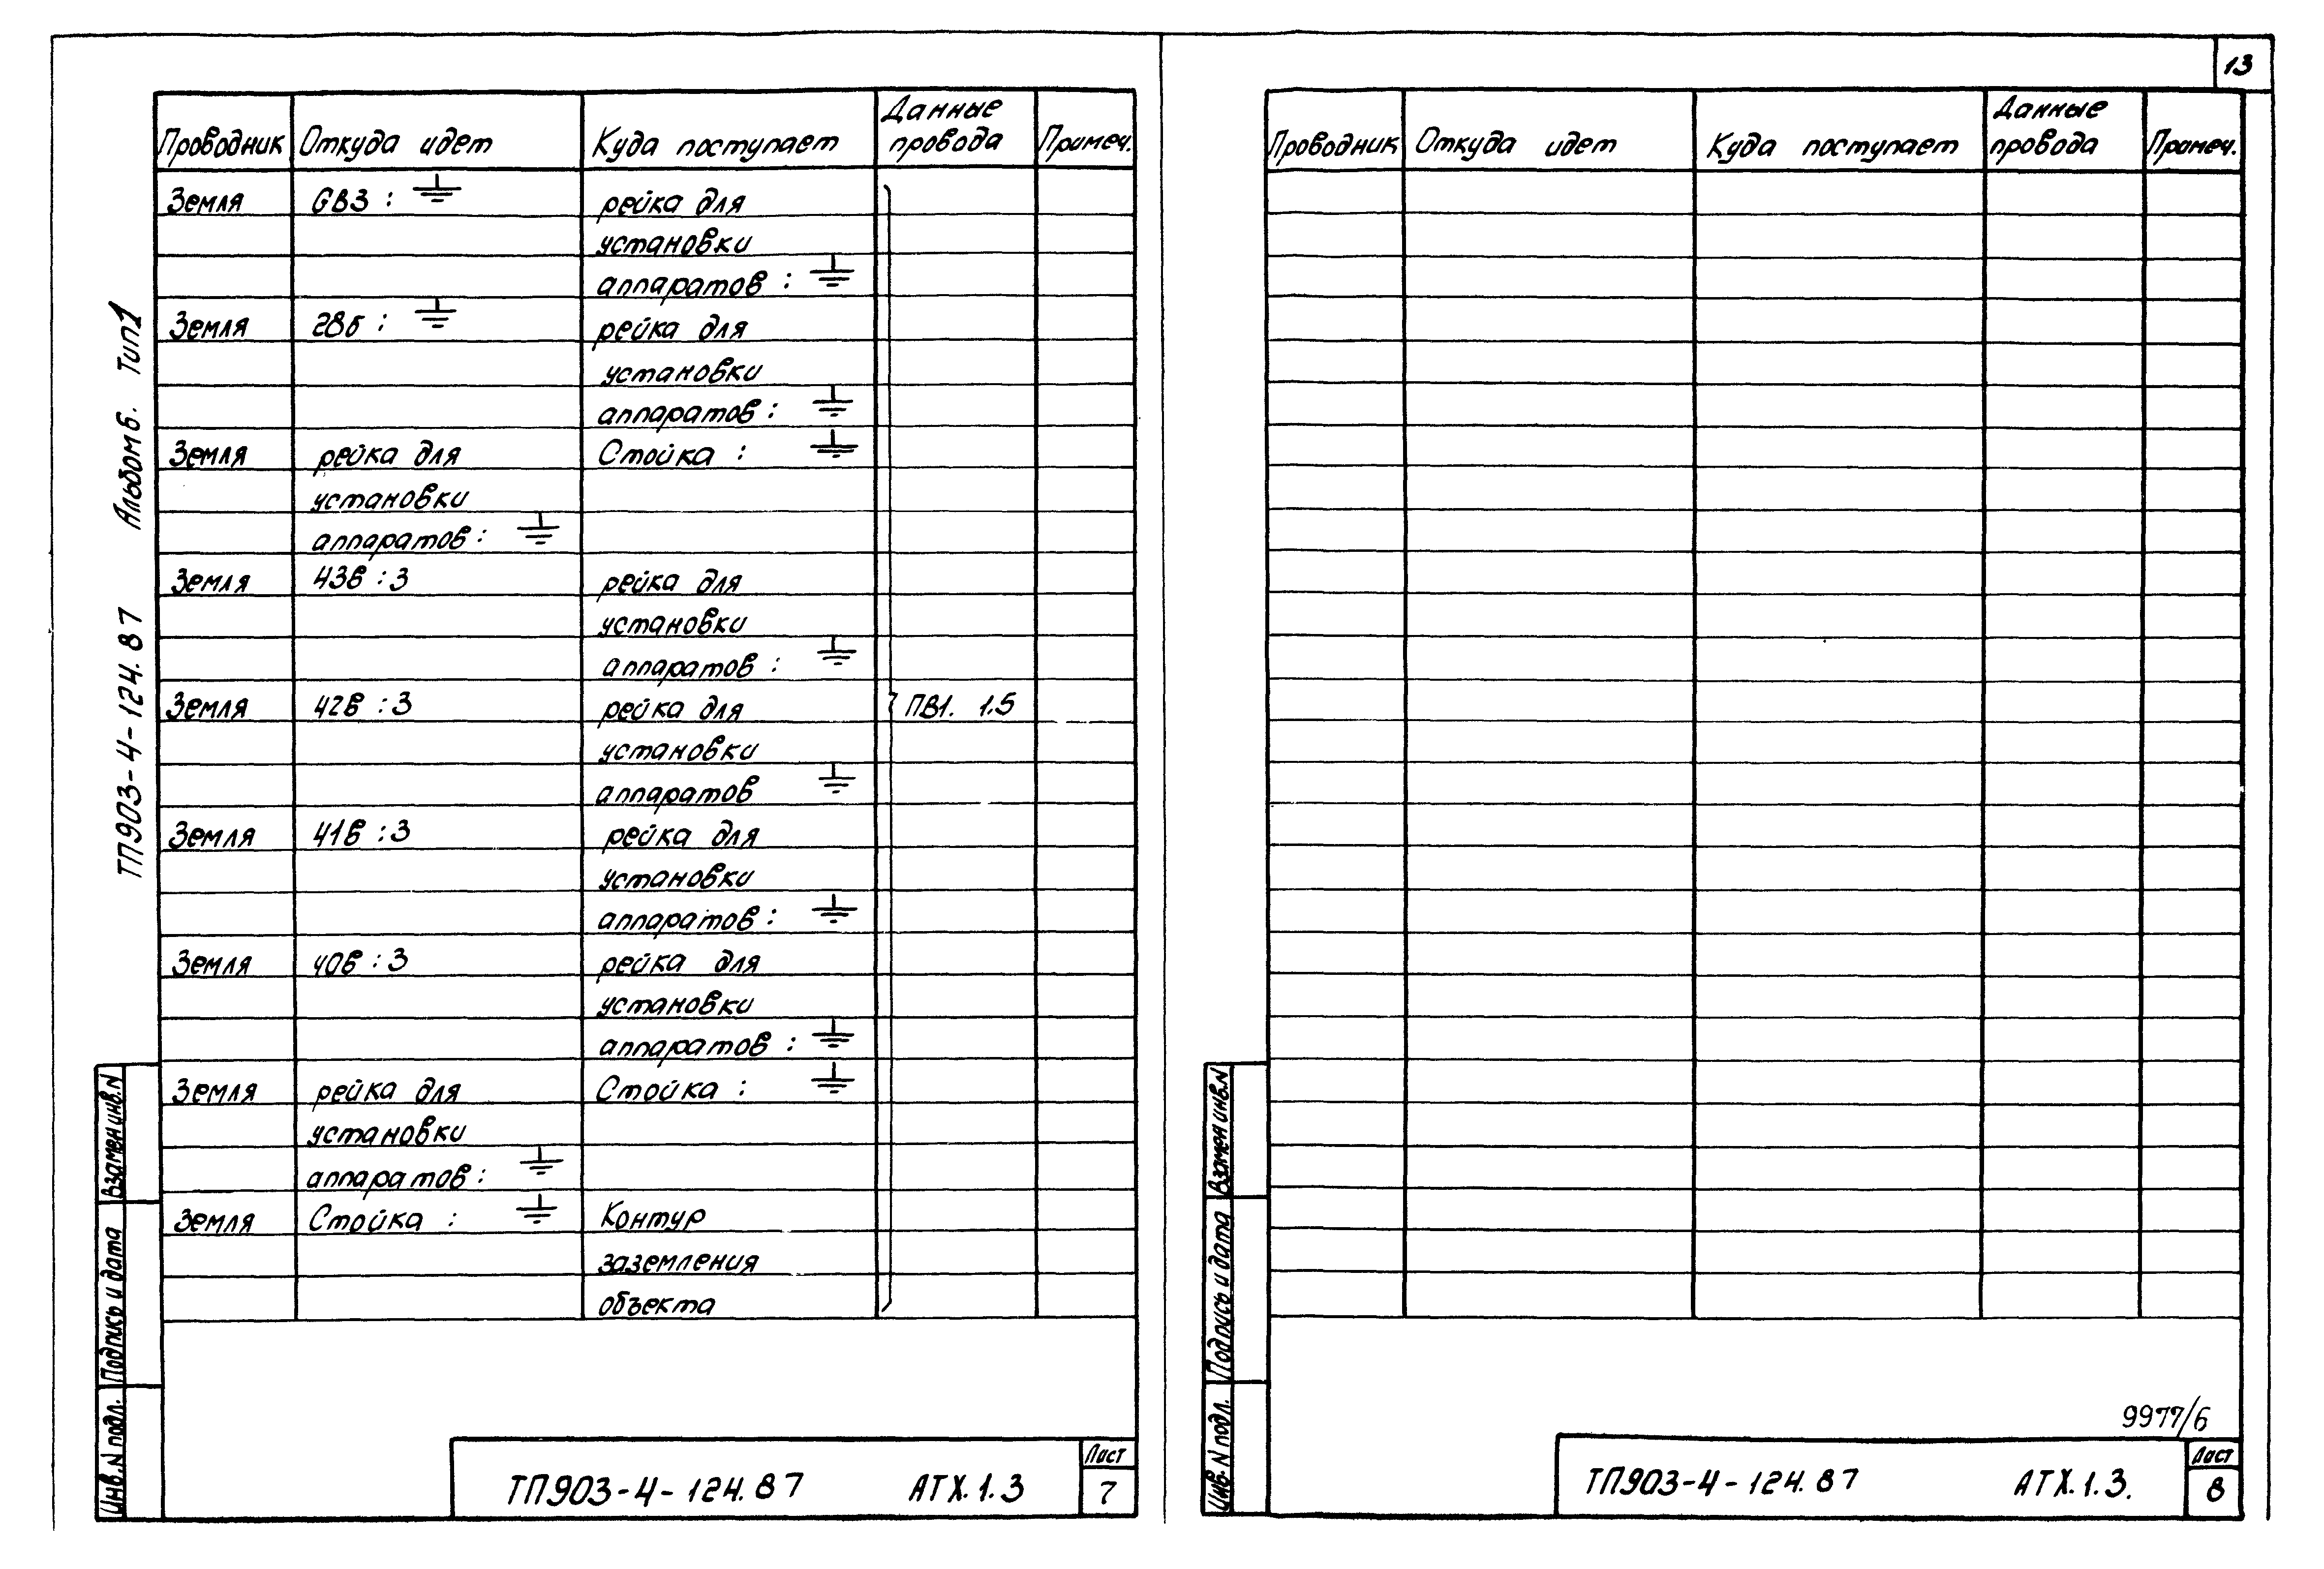 13
ТП903-4-124.87 Альбом 6. Тип 1
Проводник Откуда идет Куда поступает Данные провода Примеч.
Земля GB3 : ⏚ рейка для
установки
аппаратов : ⏚
Земля 28б : ⏚ рейка для
установки
аппаратов : ⏚
Земля рейка для Стойка : ⏚
установки
аппаратов : ⏚
Земля 43в : 3 рейка для
установки
аппаратов : ⏚
Земля 42в : 3 рейка для ПВ1. 1.5
установки
аппаратов ⏚
Земля 41в : 3 рейка для
установки
аппаратов : ⏚
Земля 40в : 3 рейка для
установки
аппаратов : ⏚
Земля рейка для Стойка : ⏚
установки
аппаратов : ⏚
Земля Стойка : ⏚ Контур
заземления
объекта
Взамен инв.N
Подпись и дата
Инв.N подл.
ТП903-4-124.87 АТХ.1.3
Лист
7
Проводник Откуда идет Куда поступает Данные провода Примеч.
Взамен инв.N
Подпись и дата
Инв.N подл.
9977/6
ТП903-4-124.87 АТХ.1.3.
Лист
8